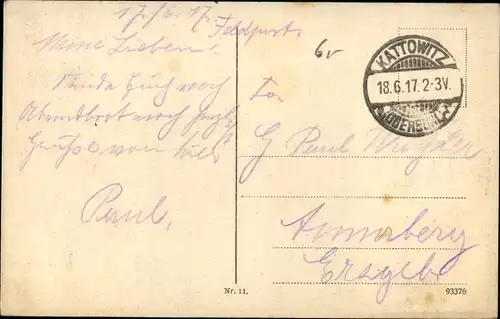 17./6.17.
Feldpost.
Meine Lieben!
Sende Euch noch
Abendbrot noch
Grüße von hier
Paul,
6v
KATTOWITZ
18.6.17.2-3V.
G Paul
Annaberg
Erzgeb
Nr. 11.
93376